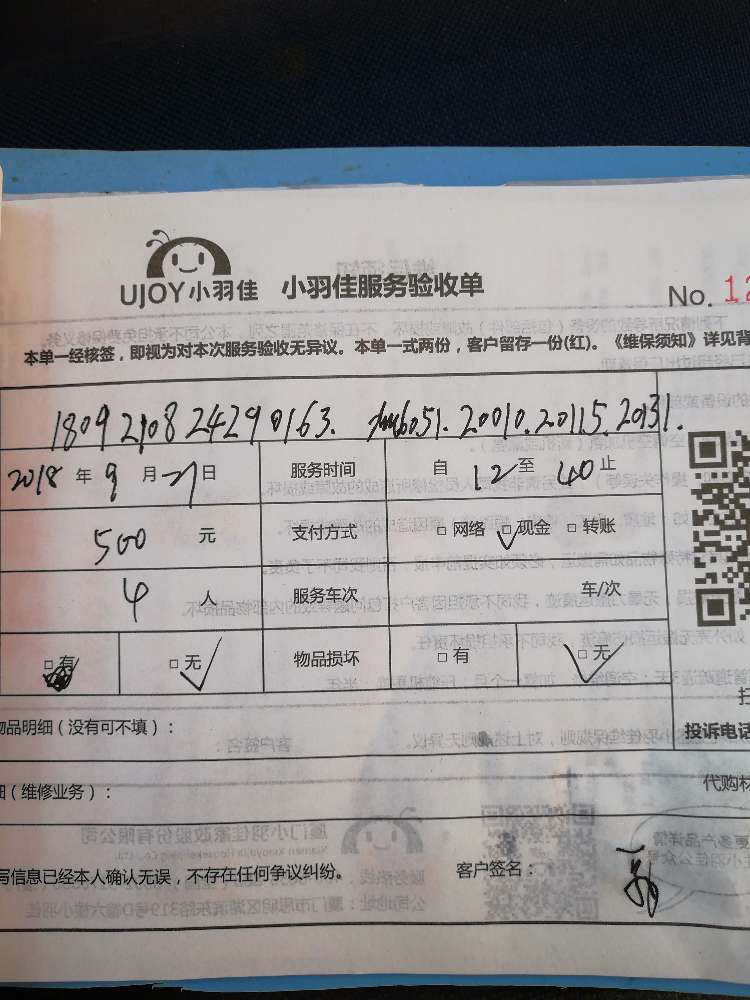 UJOY小羽佳 小羽佳服务验收单
No. 12
本单一经核签，即视为对本次服务验收无异议。本单一式两份，客户留存一份(红)。《维保须知》详见背
1809210824290163. 20010.20115.20131.
2018 年 9 月 21 日 服务时间 自 12 至 40 止
500 元 支付方式 □ 网络 □ 现金 □ 转账
4 人 服务车次 车/次
□ 有 □ 无 物品损坏 □ 有 □ 无
物品明细（没有可不填）：
投诉电话
（维修业务）：
代购材
写信息已经本人确认无误，不存在任何争议纠纷。 客户签名：